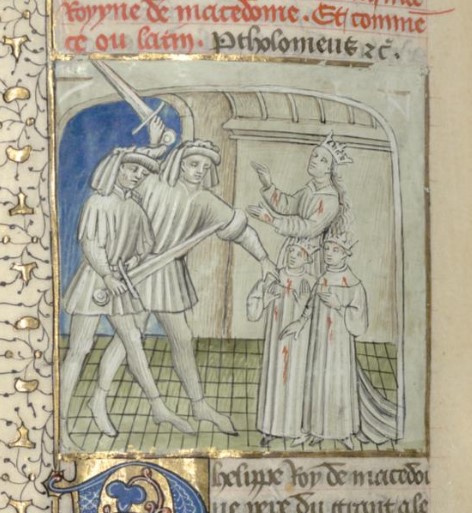 Royyne de macedome. Et comme
ce ou latin. Ptholomeus ⁊c̃.
helippe Roy de macedoi
ue pere du grant ale